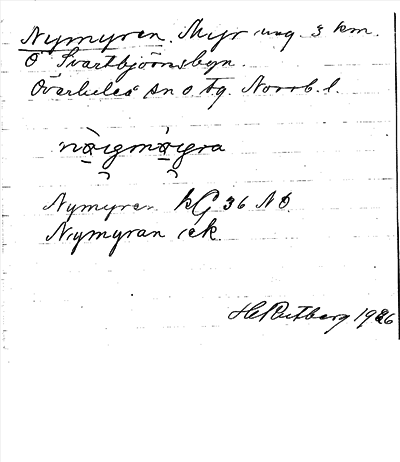 Nymyren. Myr ung. 3 km.
Ö Svartbjörnsbyn.
Överluleå sn o tg. Norrb. l.
Nymyren kG 36 NÖ.
Nymyran ek.
H Rutberg 1926